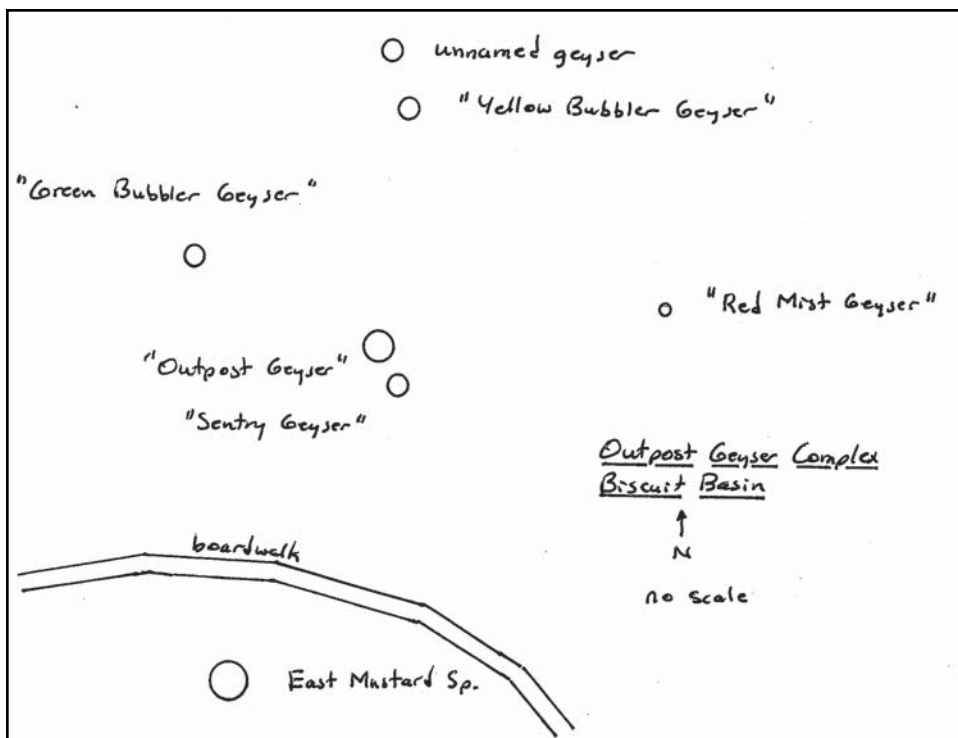 unnamed geyser
"Yellow Bubbler Geyser"
"Green Bubbler Geyser"
"Red Mist Geyser"
"Outpost Geyser"
"Sentry Geyser"
Outpost Geyser Complex
Biscuit Basin
N
no scale
boardwalk
East Mustard Sp.